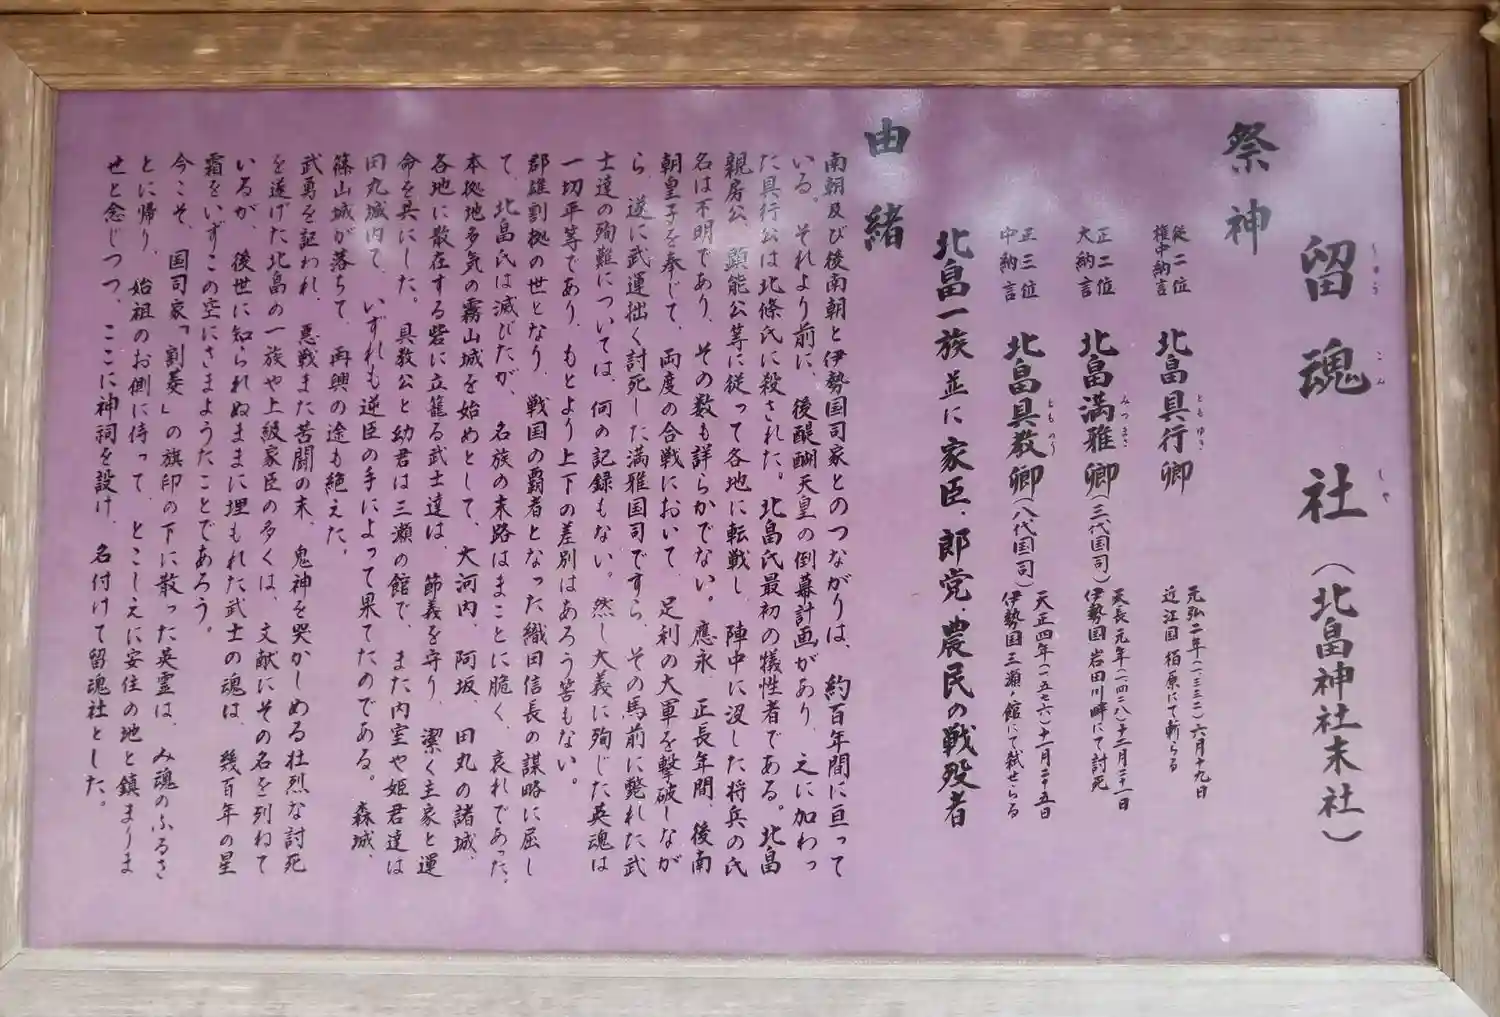 留魂社（北畠神社末社）
りゅう こん しゃ
祭神
従二位
権中納言
北畠具行卿
ともゆき
元弘二年（一三三二）六月十九日
近江国柏原にて斬らる
正二位
大納言
北畠満雅卿（三代国司）
みつまさ
正長元年（一四二八）十二月二十一日
伊勢国岩田川畔にて討死
正三位
中納言
北畠具教卿（八代国司）
とものり
天正四年（一五七六）十一月二十五日
伊勢国三瀬ノ館にて弑せらる
北畠一族並に家臣、郎党、農民の戦歿者
由緒
南朝及び後南朝と伊勢国司家とのつながりは、約百年間に亘って
いる。それより前に、後醍醐天皇の倒幕計画があり、之に加わっ
た具行公は北條氏に殺された。北畠氏最初の犠性者である。北畠
親房公、顕能公等に従って各地に転戦し、陣中に没した将兵の氏
名は不明であり、その数も詳らかでない。應永、正長年間、後南
朝皇子を奉じて、両度の合戦において、足利の大軍を撃破しなが
ら、遂に武運拙く討死した満雅国司ですら、その馬前に斃れた武
士達の殉難については、何の記録もない。然し大義に殉じた英魂は
一切平等であり、もとより上下の差別はあろう筈もない。
群雄割拠の世となり、戦国の覇者となった織田信長の謀略に屈し
て、北畠氏は滅びたが、名族の末路はまことに脆く、哀れであった。
本拠地多気の霧山城を始めとして、大河内、阿坂、田丸の諸城、
各地に散在する砦に立籠る武士達は、節義を守り、潔く主家と運
命を共にした。具教公と幼君は三瀬の館で、また内室や姫君達は
田丸城内で、いずれも逆臣の手によって果てたのである。森城、
篠山城が落ちて、再興の途も絶えた。
武勇を謳われ、悪戦また苦闘の末、鬼神を哭かしめる壮烈な討死
を遂げた北畠の一族や上級家臣の多くは、文献にその名を列ねて
いるが、後世に知られぬままに埋もれた武士の魂は、幾百年の星
霜をいずこの空にさまようたことであろう。
今こそ、国司家「割菱」の旗印の下に散った英霊は、み魂のふるさ
とに帰り、始祖のお側に侍って、とこしえに安住の地と鎮まりま
せと念じつつ、ここに神祠を設け、名付けて留魂社とした。